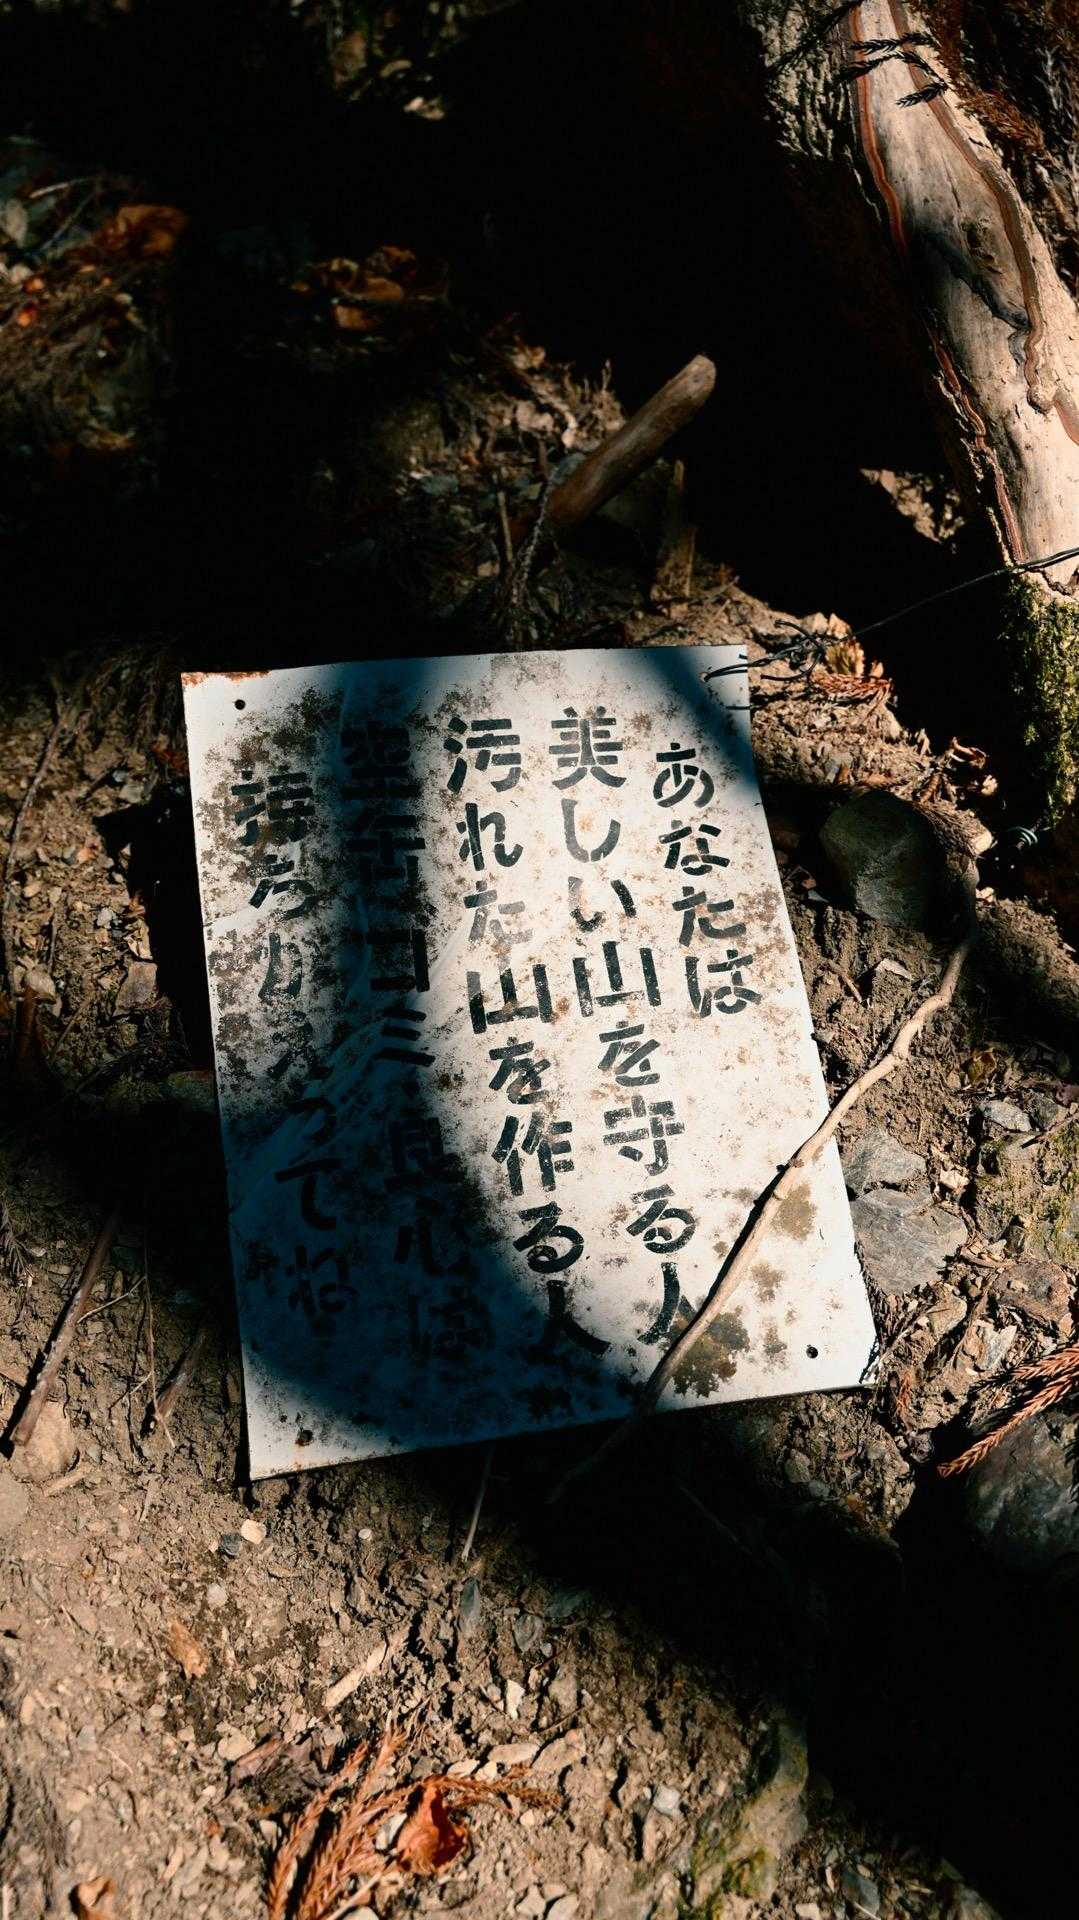 あなたは
美しい山を守る人
汚れた山を作る人
空缶ゴミ良心は
持ちかえってね